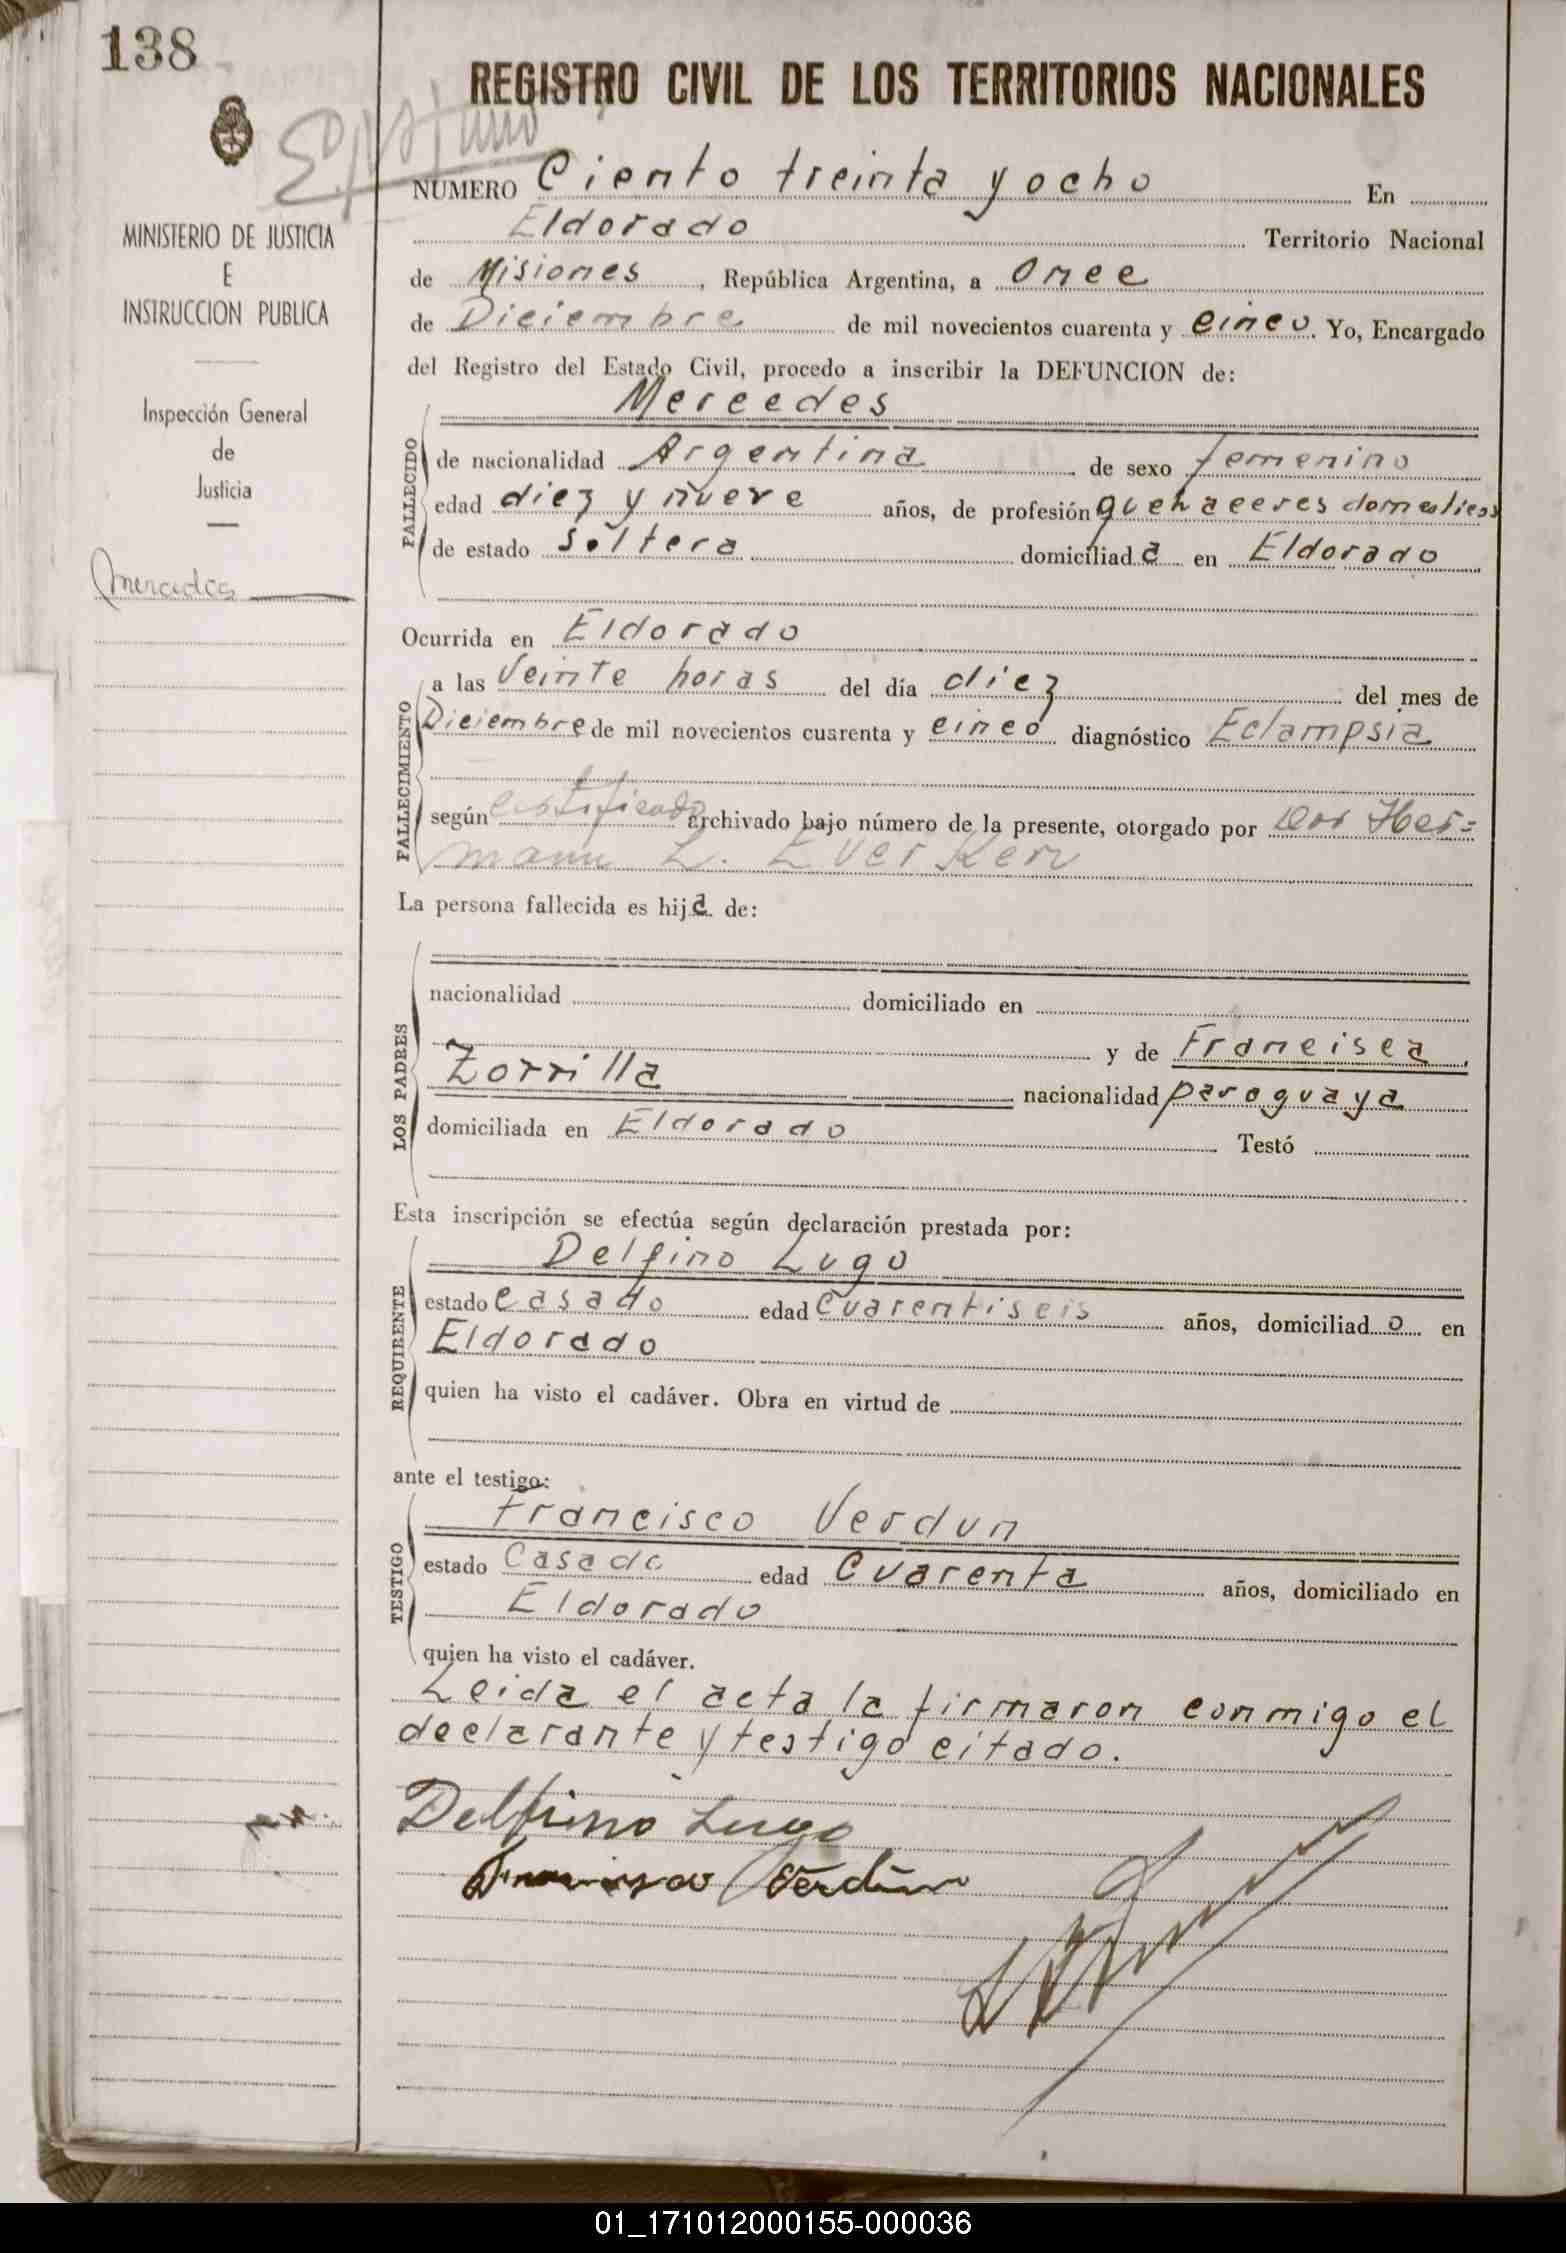 138
REGISTRO CIVIL DE LOS TERRITORIOS NACIONALES
MINISTERIO DE JUSTICIA
E
INSTRUCCION PUBLICA
Inspección General
de
Justicia
Mercedes
NUMERO Ciento treinta y ocho En
Eldorado Territorio Nacional
de Misiones, República Argentina, a Once
de Diciembre de mil novecientos cuarenta y cinco. Yo, Encargado
del Registro del Estado Civil, procedo a inscribir la DEFUNCION de:
Mercedes
FALLECIDO
de nacionalidad Argentina de sexo femenino
edad diez y nueve años, de profesión quehaceres domesticos
de estado soltera domiciliada en Eldorado
Ocurrida en Eldorado
FALLECIMIENTO
a las Veinte horas del día diez del mes de
Diciembre de mil novecientos cuarenta y cinco diagnóstico Eclampsia
según certificado archivado bajo número de la presente, otorgado por Her=
mann L. Everken
La persona fallecida es hija de:
LOS PADRES
nacionalidad domiciliado en
y de Francisca,
Zorrilla nacionalidad paraguaya
domiciliada en Eldorado Testó
Esta inscripción se efectúa según declaración prestada por:
Delfino Lugo
REQUIRENTE
estado casado edad Cuarentiseis años, domiciliado en
Eldorado
quien ha visto el cadáver. Obra en virtud de
ante el testigo:
Francisco Verdun
TESTIGO
estado Casado edad Cuarenta años, domiciliado en
Eldorado
quien ha visto el cadáver.
Leida el acta la firmaron conmigo el
declarante y testigo citado.
Delfino Lugo
Francisco Verdun
01_171012000155-000036